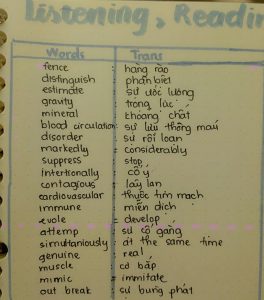 Listening, Readin
Words Trans
fence : hàng rào
distinguish : phân biệt
estimate : sự ước lượng
gravity : trọng lực
mineral : khoáng chất
blood circulation : sự lưu thông máu
disorder : sự rối loạn
markedly : considerably
suppress : stop
intentionally : cố ý
contagious : lây lan
cardiovascular : thuộc tim mạch
immune : miễn dịch
evole = develop
attemp : sự cố gắng
simultaneously : at the same time
genuine : real
muscle : cơ bắp
mimic = immitate
out break : sự bùng phát